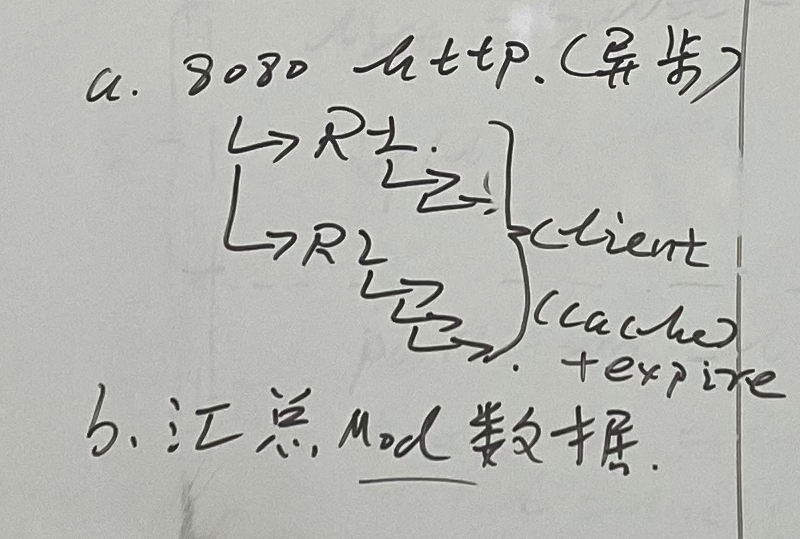 a. 8080 http. (异步)
↳ R1.
↳ R2
} client
(cache)
+ expire
b. 汇总 Mod 数据.